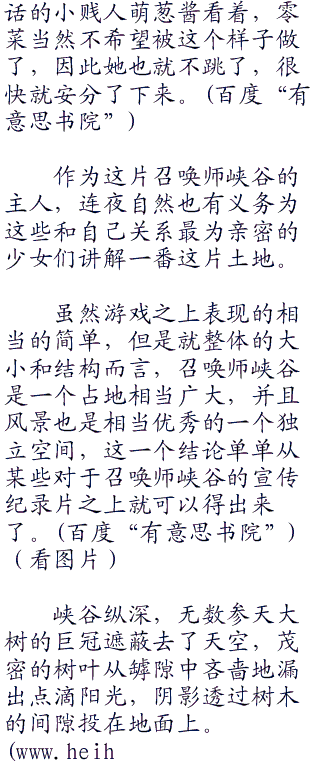 话的小贱人萌葱酱看着，零
菜当然不希望被这个样子做
了，因此她也就不跳了，很
快就安分了下来。(百度“有
意思书院”)
作为这片召唤师峡谷的
主人，连夜自然也有义务为
这些和自己关系最为亲密的
少女们讲解一番这片土地。
虽然游戏之上表现的相
当的简单，但是就整体的大
小和结构而言，召唤师峡谷
是一个占地相当广大，并且
风景也是相当优秀的一个独
立空间，这一个结论单单从
某些对于召唤师峡谷的宣传
纪录片之上就可以得出来
了。(百度“有意思书院”)
（看图片）
峡谷纵深，无数参天大
树的巨冠遮蔽去了天空，茂
密的树叶从罅隙中吝啬地漏
出点滴阳光，阴影透过树木
的间隙投在地面上。
(www.heih